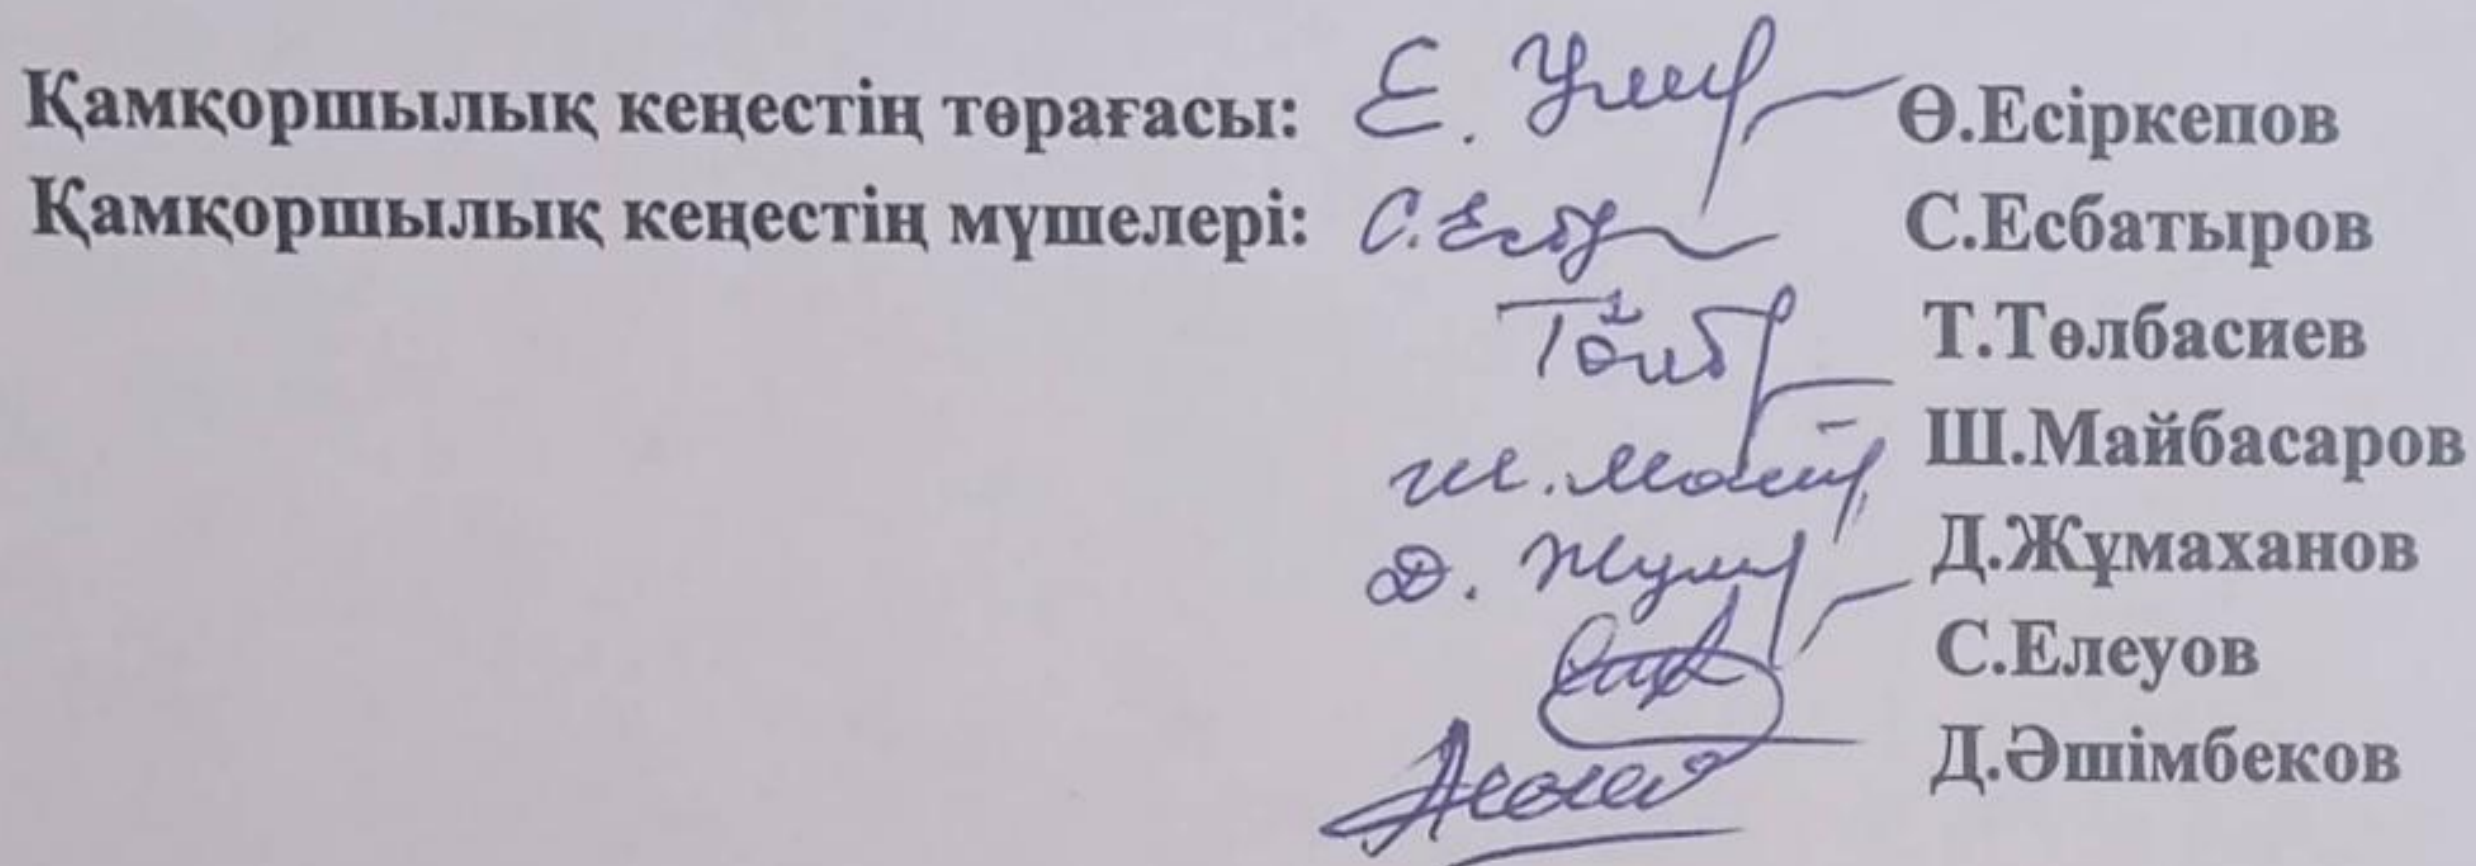 Қамқоршылық кеңестің төрағасы: Ө.Есіркепов
Қамқоршылық кеңестің мүшелері: С.Есбатыров
Т.Төлбасиев
Ш.Майбасаров
Д.Жұмаханов
С.Елеуов
Д.Әшімбеков